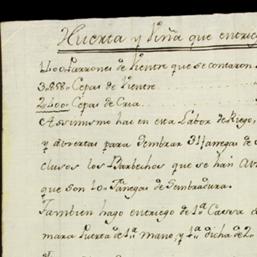 Huerta y Viña que entrieg
1400 Parrones de Viente que se contaron
3.888 Cepas de Viente
2.400 Cepas de Cria
Asimismo hai en esta Labor de Riego,
y abiertas para Sembrar 31 fanegas de
clusos los Barbechos que se han
que son 10 fanegas de Sembradura
Tambien hago entriego de 1a
mara Puerta de 1a mano y 1a dicha de 2